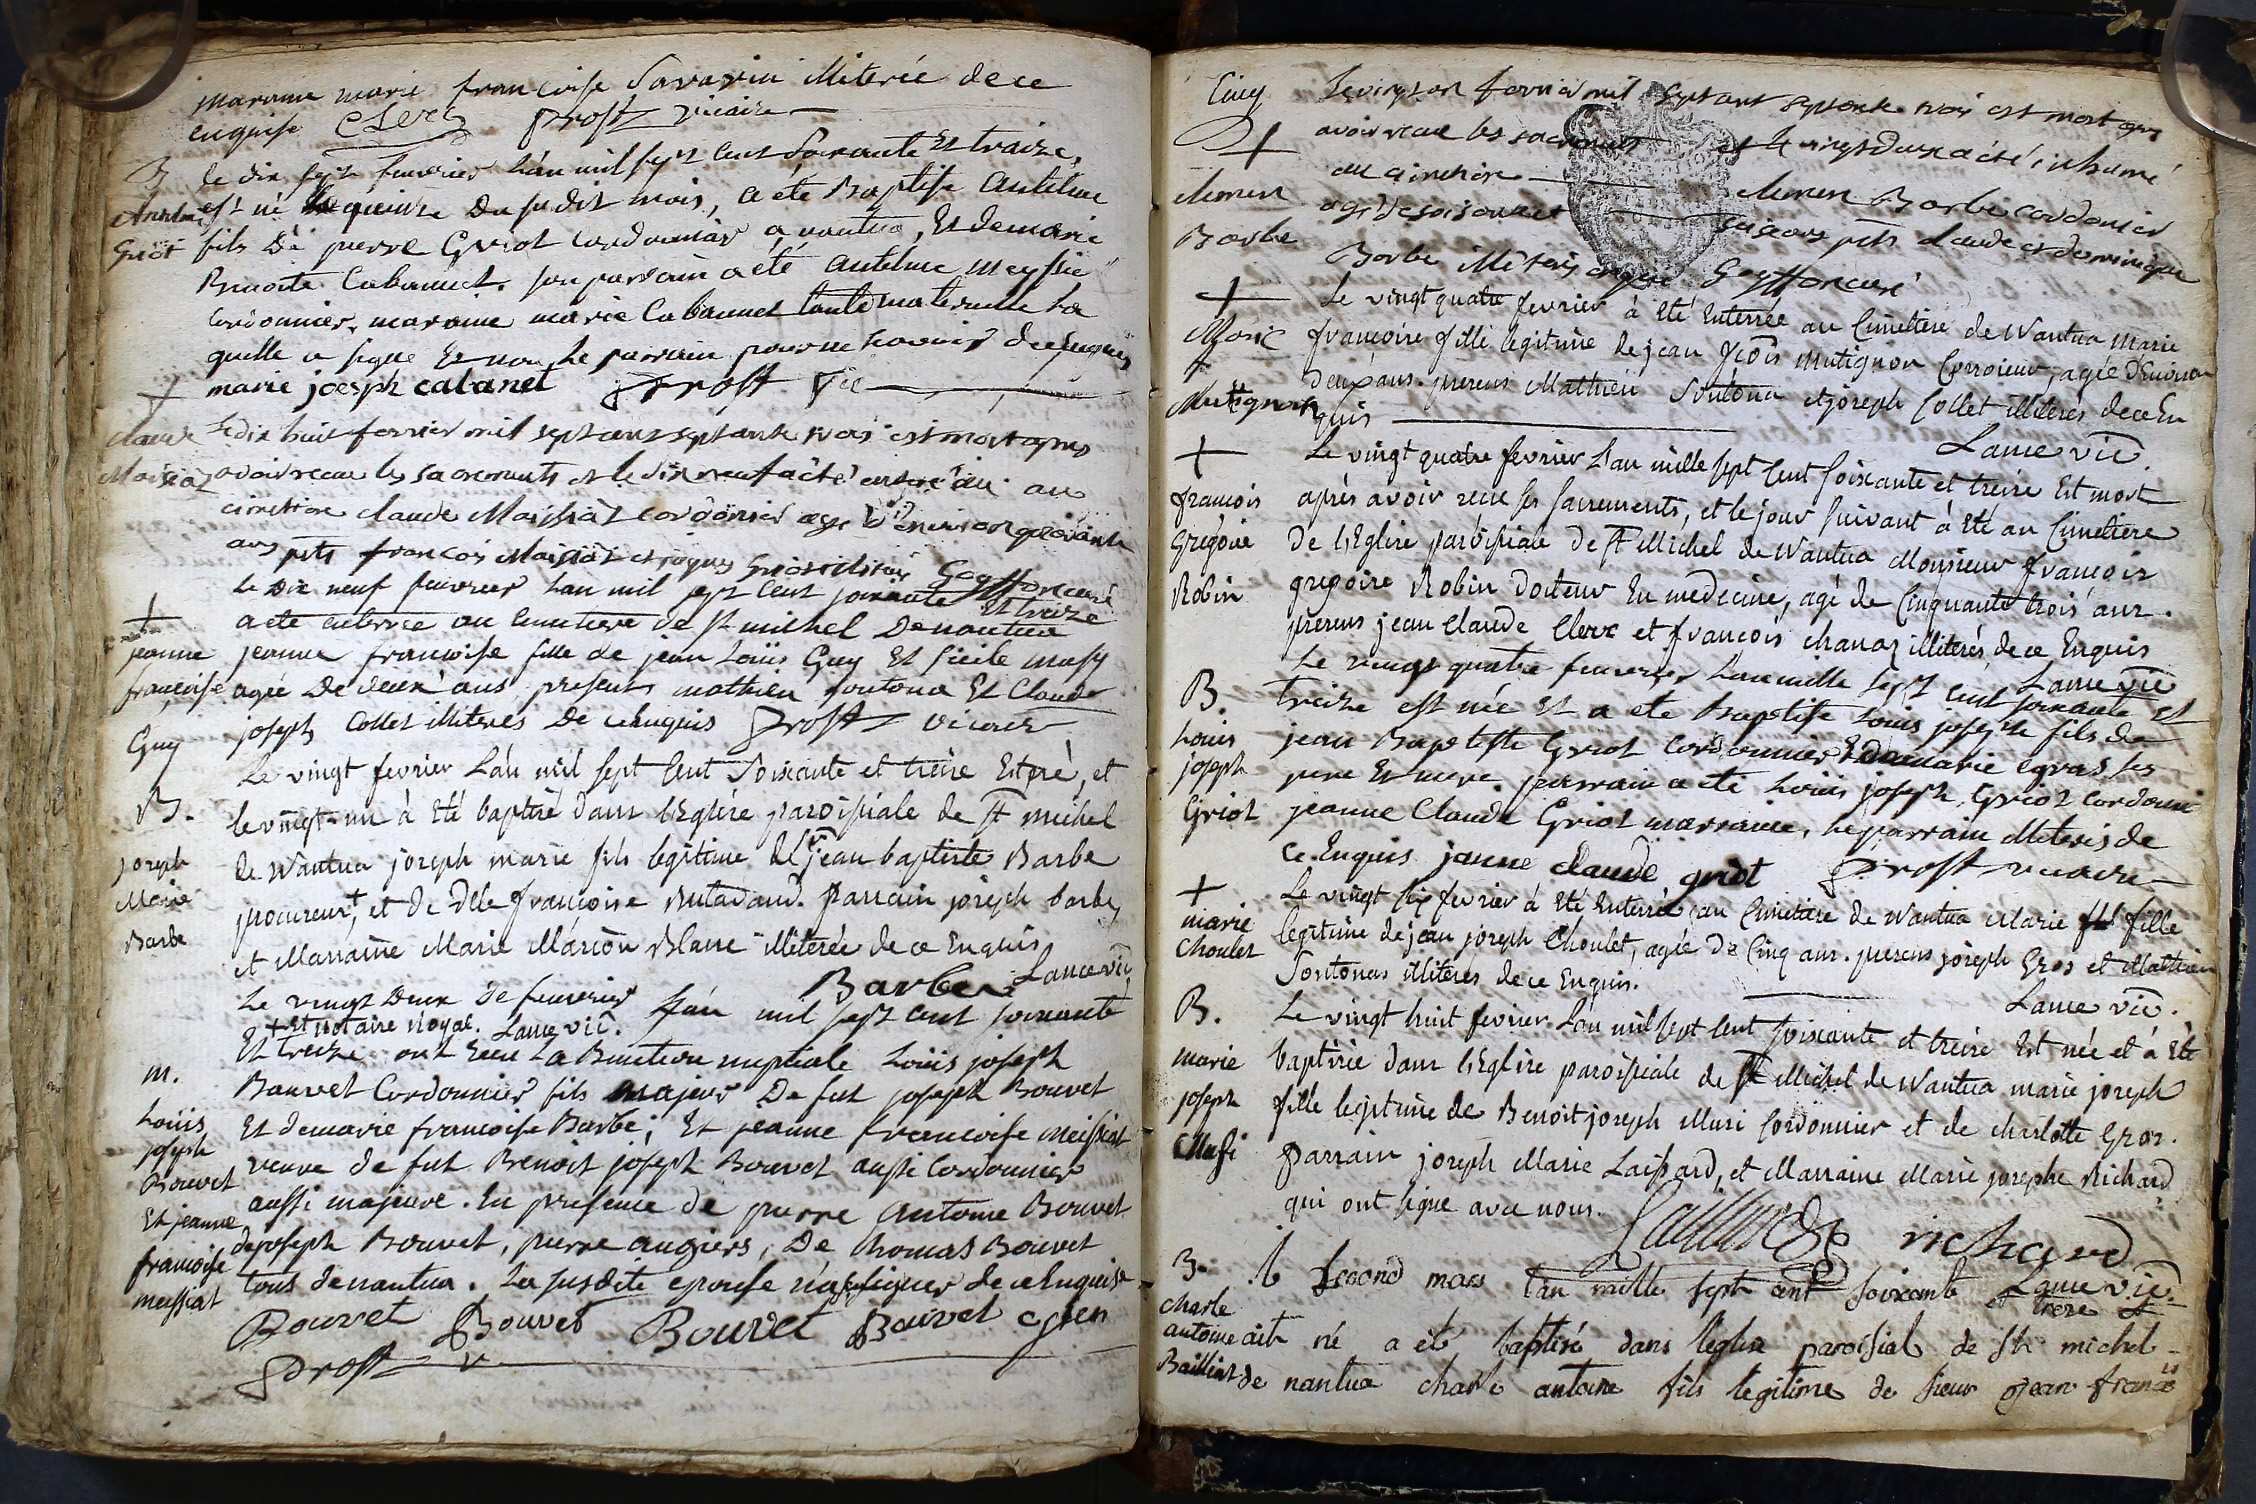 marraine marie françoise Savarin illiterée de ce
enquise Clerc prost vicaire
B le dix sept feuvrier L'an mil sept cent soixante Et traize,
Anselme est né le quinze Du susdit mois, a été Baptisé Antelme
Griot fils De pierre Griot cordonnier a nantua, Et de marie
Benoite Cabannet. son parrain a été antelme meyssié
Cordonnier, marraine marie Cabannet tante maternelle la
quelle a signé Et non le parrain pour ne scavoir de ce enquis
marie joesph cabanet prost vic
+
Claude Le dix huit fevrier mil sept cent septante trois est mort apres
Maissiaz avoir receu les sacrements et le dix neuf a été enterré au
cimetiere claude Maissiaz cordonier agé d'environ quarante
ans pnts françois Maissiaz et jaques Griot illitérés Goyffon curé
Le Dix neuf feuvrier L'an mil sept cent soixante Et traize
+ a été enterrée au cimetiere de St michel De nantua
jeanne jeanne françoise fille de jean Loüis Guy Et Cicile masy
françoise agée De deux ans presents mathieu sontona Et Claude
Guy joseph Collet illiteres De ce enquis prost vicaire
Le vingt fevrier L'an mil sept Cent Soixante et treize Est né, et
B. le vingt-un à Eté baptisé dans l'Eglise paroissiale de St michel
joseph de Nantua joseph marie fils legitime de Sr jean baptiste Barbe
Marie procureur+, et de dlle françoise Butavand. Parrain joseph barbe,
Barbe et Marraine Marie Marion Blanc illiterée de ce Enquis
Barbe Lance vic
Le vingt Deux de feuvrier L'an mil sept cent soixante
+ Et notaire Royal. Lance vic.
Et treize ont receu La Benediction nuptiale Loüis joseph
m. Bouvet Cordonnier fils majeur De fut joseph Bouvet
Loüis Et de marie françoise Barbe; Et jeanne francoise meissiat
joseph veuve de fut Benoit joseph Bouvet aussi Cordonnier
Bouvet aussi majeure. En presence de pierre Antoine Bouvet
Et jeanne de joseph Bouvet, pierre augiers, De thomas Bouvet
françoise tous de nantua. La susdite epouse n'a sçu signer de ce Enquise
meissiat
Bouvet Bouvet Bouvet Bouvet
prost v
Le vingt un fevrier mil sept cent septante trois est mort apres
+ avoir receu les sacrements et le vingt deux a été inhumé
au cimetiere
Clemen Clemen Barbe cordonier
Barbe agé de soisante et seise ans pnts claude et dominique
Barbe illiterés enquis Goyffon curé
+ Le vingt quatre fevrier à Eté Enterrée au Cimetiere de Nantua Marie
Marie françoise fille legitime de jean fçois Mutignon Corroieur, agée d'Environ
f. deux ans. presens Mathieu Sontona et joseph Collet illiterés de ce En
Mutignon quis
Lance vic.
+ Le vingt quatre fevrier L'an mille sept Cent soixante et treize Est mort
françois après avoir receu ses sacrements, et le jour suivant à Eté au Cimetiere
Gregoire De l'Eglise paroissiale de St Michel de Nantua Monsieur françois
Robin gregoire Robin docteur En medecine, agé de Cinquante trois ans.
presens jean Claude Clerc et françois chanaz illiterés, de ce Enquis
Lance vic
Le vingt quatre feuvrier L'an mille sept cent soixante Et
B. treize est née Et a eté Baptisé Louis joseph fils de
Louis jean Baptiste Griot Cordonnier Et de marie egras ses
joseph pere Et mere parrain a eté Loüis joseph Griot Cordonnier
Griot jeanne Claude Griot marraine, le parrain illiterés de
Ce Enquis janne claude griot prost vicaire
+ Le vingt six fevrier à Eté Enterrée au Cimetiere de Nantua Marie fille
marie legitime de jean joseph Choulet, agée de Cinq ans. presens joseph Gros et Mathieu
Choulet Sontonas illiteres de ce Enquis.
Lance vic.
B. Le vingt huit fevrier L'an mil sept Cent soixante et treize Est née et à Eté
marie baptisée dans l'Eglise paroissiale de St Michel de Nantua marie joseph
joseph fille legitime de Benoit joseph Masi Cordonnier et de charlotte Gros.
Massi Parrain joseph Marie Laissard, et Marraine Marie josephe Richard
qui ont signé avec nous.
Laissard richard
Lance vic.
B. le second mars l'an mille sept cent soixante et treze Et
Charle
antoine né a été baptisé dans leglise paroisial de st michel
Bailliat de nantua charle antoine fils legitime de sieur jean françois